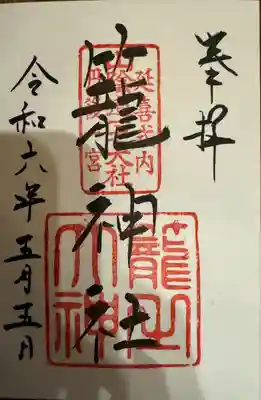 奉拝
延喜式内
大社
丹後一宮
籠神社
籠之
大神
令和六年五月五日